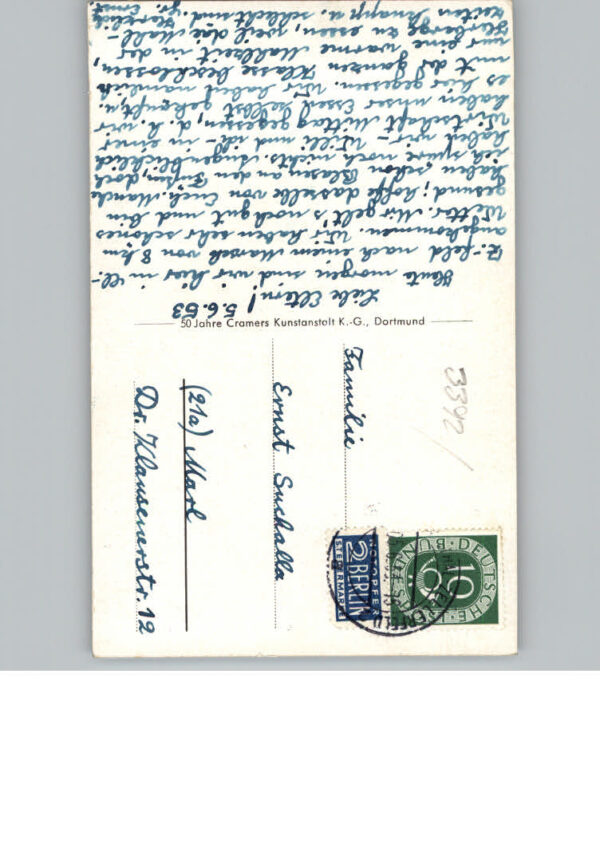 Liebe Eltern! 5.6.53
Heute morgen sind wir hier in Cl.-
Z.-feld nach einem Marsch von 8 km
angekommen. Wir haben sehr schönes
Wetter. Mir geht's noch gut und bin
gesund; hoffe dasselbe von Euch. Manche
haben schon Blasen an den Füßen, doch
ich spüre noch nichts. Augenblicklich
haben wir - Willi und ich - in einer
Wirtschaft Mittag gegessen, d.h. wir
haben unser Essen selbst gekauft u.
es hier gegessen. Wir haben nämlich
mit der ganzen Klasse beschlossen,
nur eine warme Mahlzeit in der
Herberge zu essen, weil die Mahl-
zeiten knapp u. schlecht sind. Herzlich
gr. Ernst
50 Jahre Cramers Kunstanstalt K.-G., Dortmund
Familie
Ernst Suchalla
(21a) Marl
Dr. Klausenerstr. 12
3392
DEUTSCHE BUNDESPOST
10
NOTOPFER
2 BERLIN
STEUERMARKE